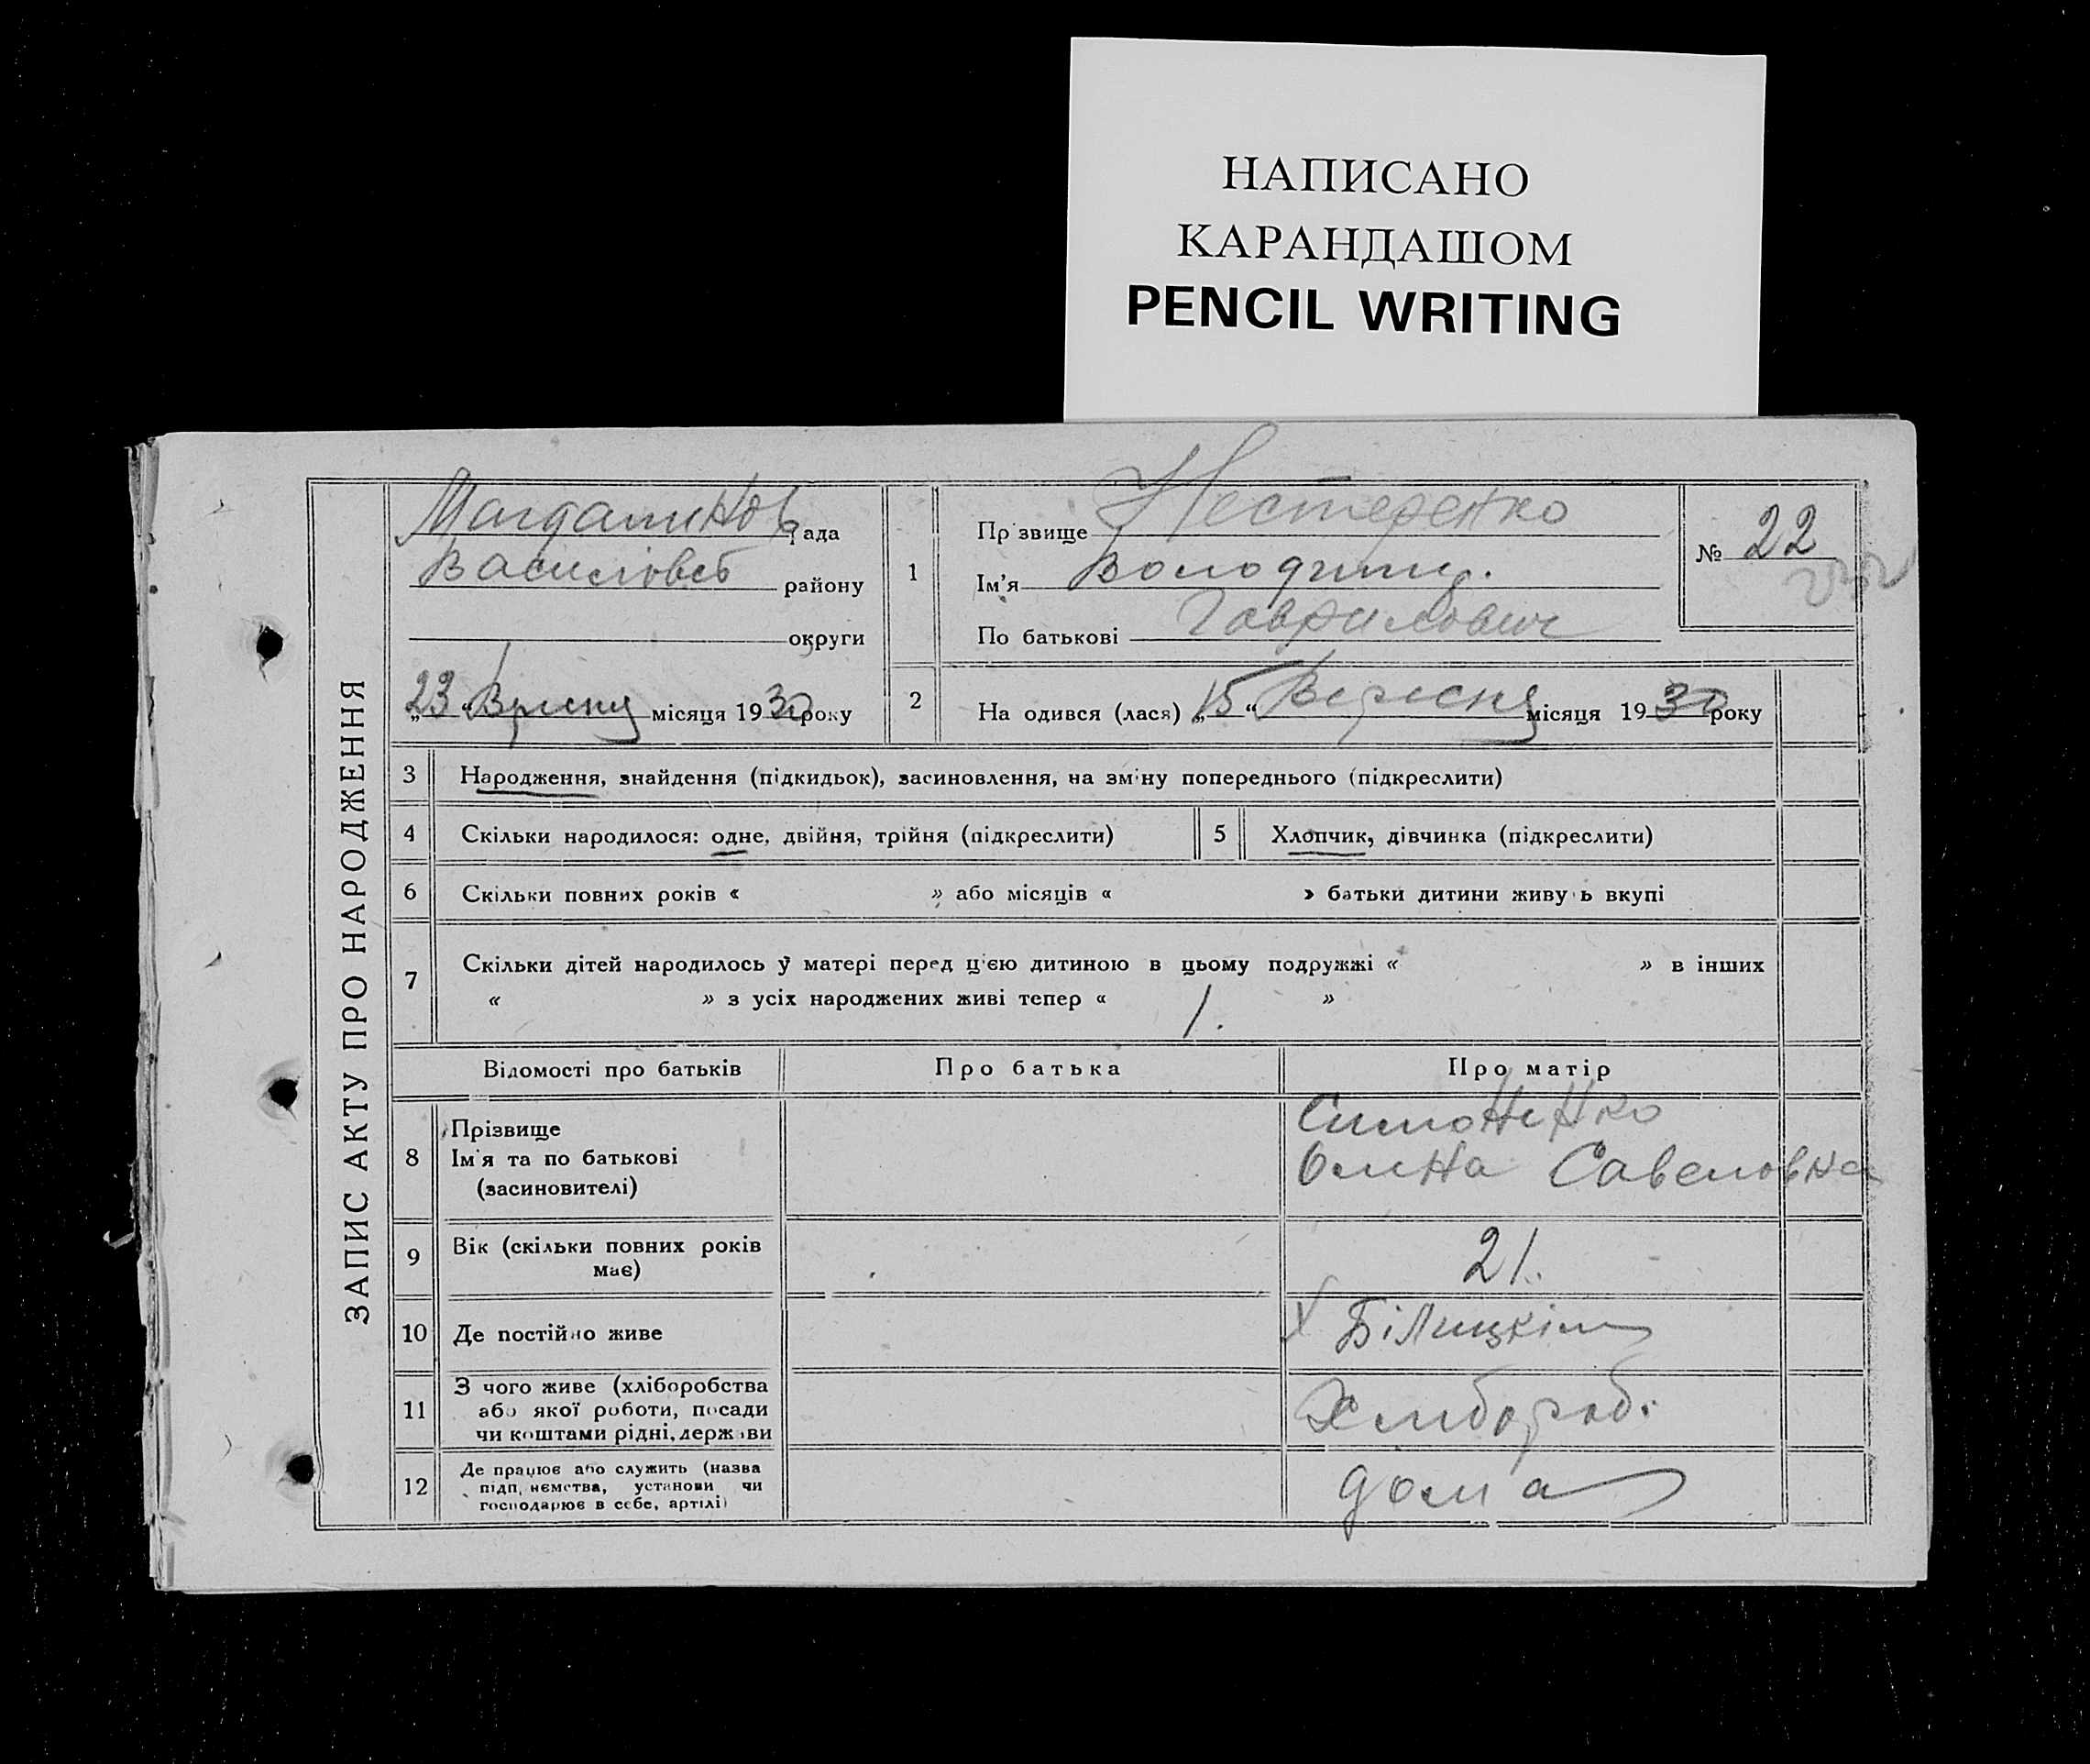 НАПИСАНО
КАРАНДАШОМ
PENCIL WRITING
ЗАПИС АКТУ ПРО НАРОДЖЕННЯ
Магдалинов рада
Василівсб району
округи
„23“ Вресня місяця 1930 року
1
Прізвище Нестеренко
Ім'я Володимир.
По батькові Гаврилович
№ 22
2
Народився (лася) „15“ Вересня місяця 1930 року
3 Народження, знайдення (підкидьок), засиновлення, на зміну попереднього (підкреслити)
4 Скільки народилося: одне, двійня, трійня (підкреслити) 5 Хлопчик, дівчинка (підкреслити)
6 Скільки повних років « » або місяців « » батьки дитини живуть вкупі
7 Скільки дітей народилось у матері перед цією дитиною в цьому подружжі « » в інших
« » з усіх народжених живі тепер « 1. »
Відомості про батьків Про батька Про матір
8 Прізвище
Ім'я та по батькові
(засиновителі)
Симоненко
Олина Савеловна
9 Вік (скільки повних років
має)
21.
10 Де постійно живе
х Білицкім
11 З чого живе (хліборобства
або якої роботи, посади
чи коштами рідні, держави
Хлибороб.
12 Де працює або служить (назва
підприємства, установи чи
господарює в себе, артілі)
дома